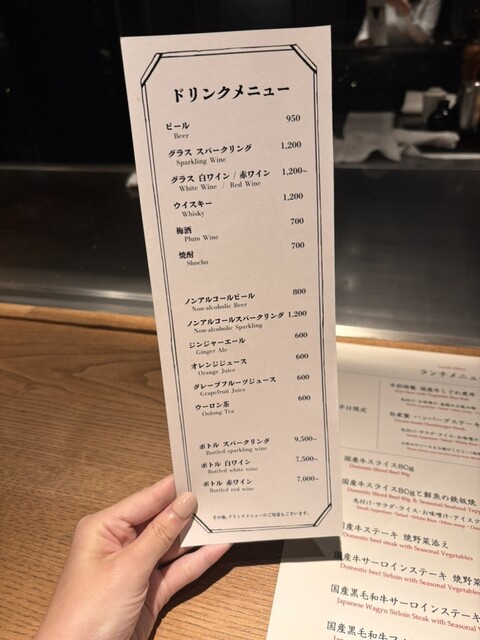 ドリンクメニュー
ビール 950
Beer
グラス スパークリング 1,200
Sparkling Wine
グラス 白ワイン / 赤ワイン 1,200~
White Wine / Red Wine
ウイスキー 1,200
Whisky
梅酒 700
Plum Wine
焼酎 700
Shochu
ノンアルコールビール 800
Non-alcoholic Beer
ノンアルコールスパークリング 1,200
Non-alcoholic Sparkling
ジンジャーエール 600
Ginger Ale
オレンジジュース 600
Orange Juice
グレープフルーツジュース 600
Grapefruit Juice
ウーロン茶 600
Oolong Tea
ボトル スパークリング 9,500~
Bottled sparkling wine
ボトル 白ワイン 7,500~
Bottled white wine
ボトル 赤ワイン 7,000~
Bottled red wine
その他、ドリンクメニューのご用意もございます。
ランチメニュ
平日限定
国産牛スライス80g
Domestic Sliced Beef 80g
国産牛スライス80gと鮮魚の鉄板焼
Domestic Sliced Beef 80g & Seasonal Seafood Tepp
名付け・サラダ・ライス・お味噌汁・アイスク
国産牛ステーキ 焼野菜添え
Domestic beef steak with Seasonal Vegetables
国産牛サーロインステーキ 焼野菜
Domestic beef Sirloin with Seasonal Vegetables
国産黒毛和牛サーロインステーキ
Japanese Wagyu Sirloin Steak with Seasonal
国産黒毛和牛